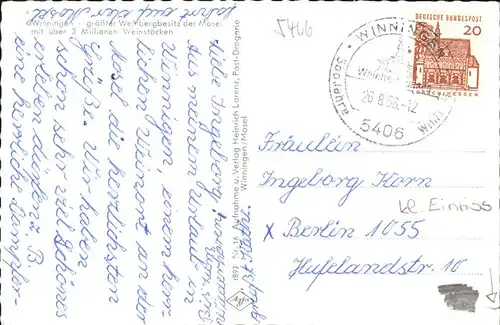 Winningen - größter Weinbergbesitz der Mosel
mit über 3 Millionen Weinstöcken
5406
Liebe Ingeborg!
Aus meinem Urlaub in
Winningen, einem herr-
lichen Weinort an der
Mosel die herzlichsten
Grüße. Wir haben
schon sehr viel Schönes
erleben dürfen z. B.
eine herrliche Dampfer-
fahrt auf der Mosel
1892 Nr. 16 Aufnahme u. Verlag Heinrich Lorenz, Post-Drogerie
Winningen/Mosel
Agfa
WINNINGEN
26.8.66-12
5406
DEUTSCHE BUNDESPOST
20
Fräulein
Ingeborg Korn
x Berlin 1055
Hufelandstr. 10
kl Einriss